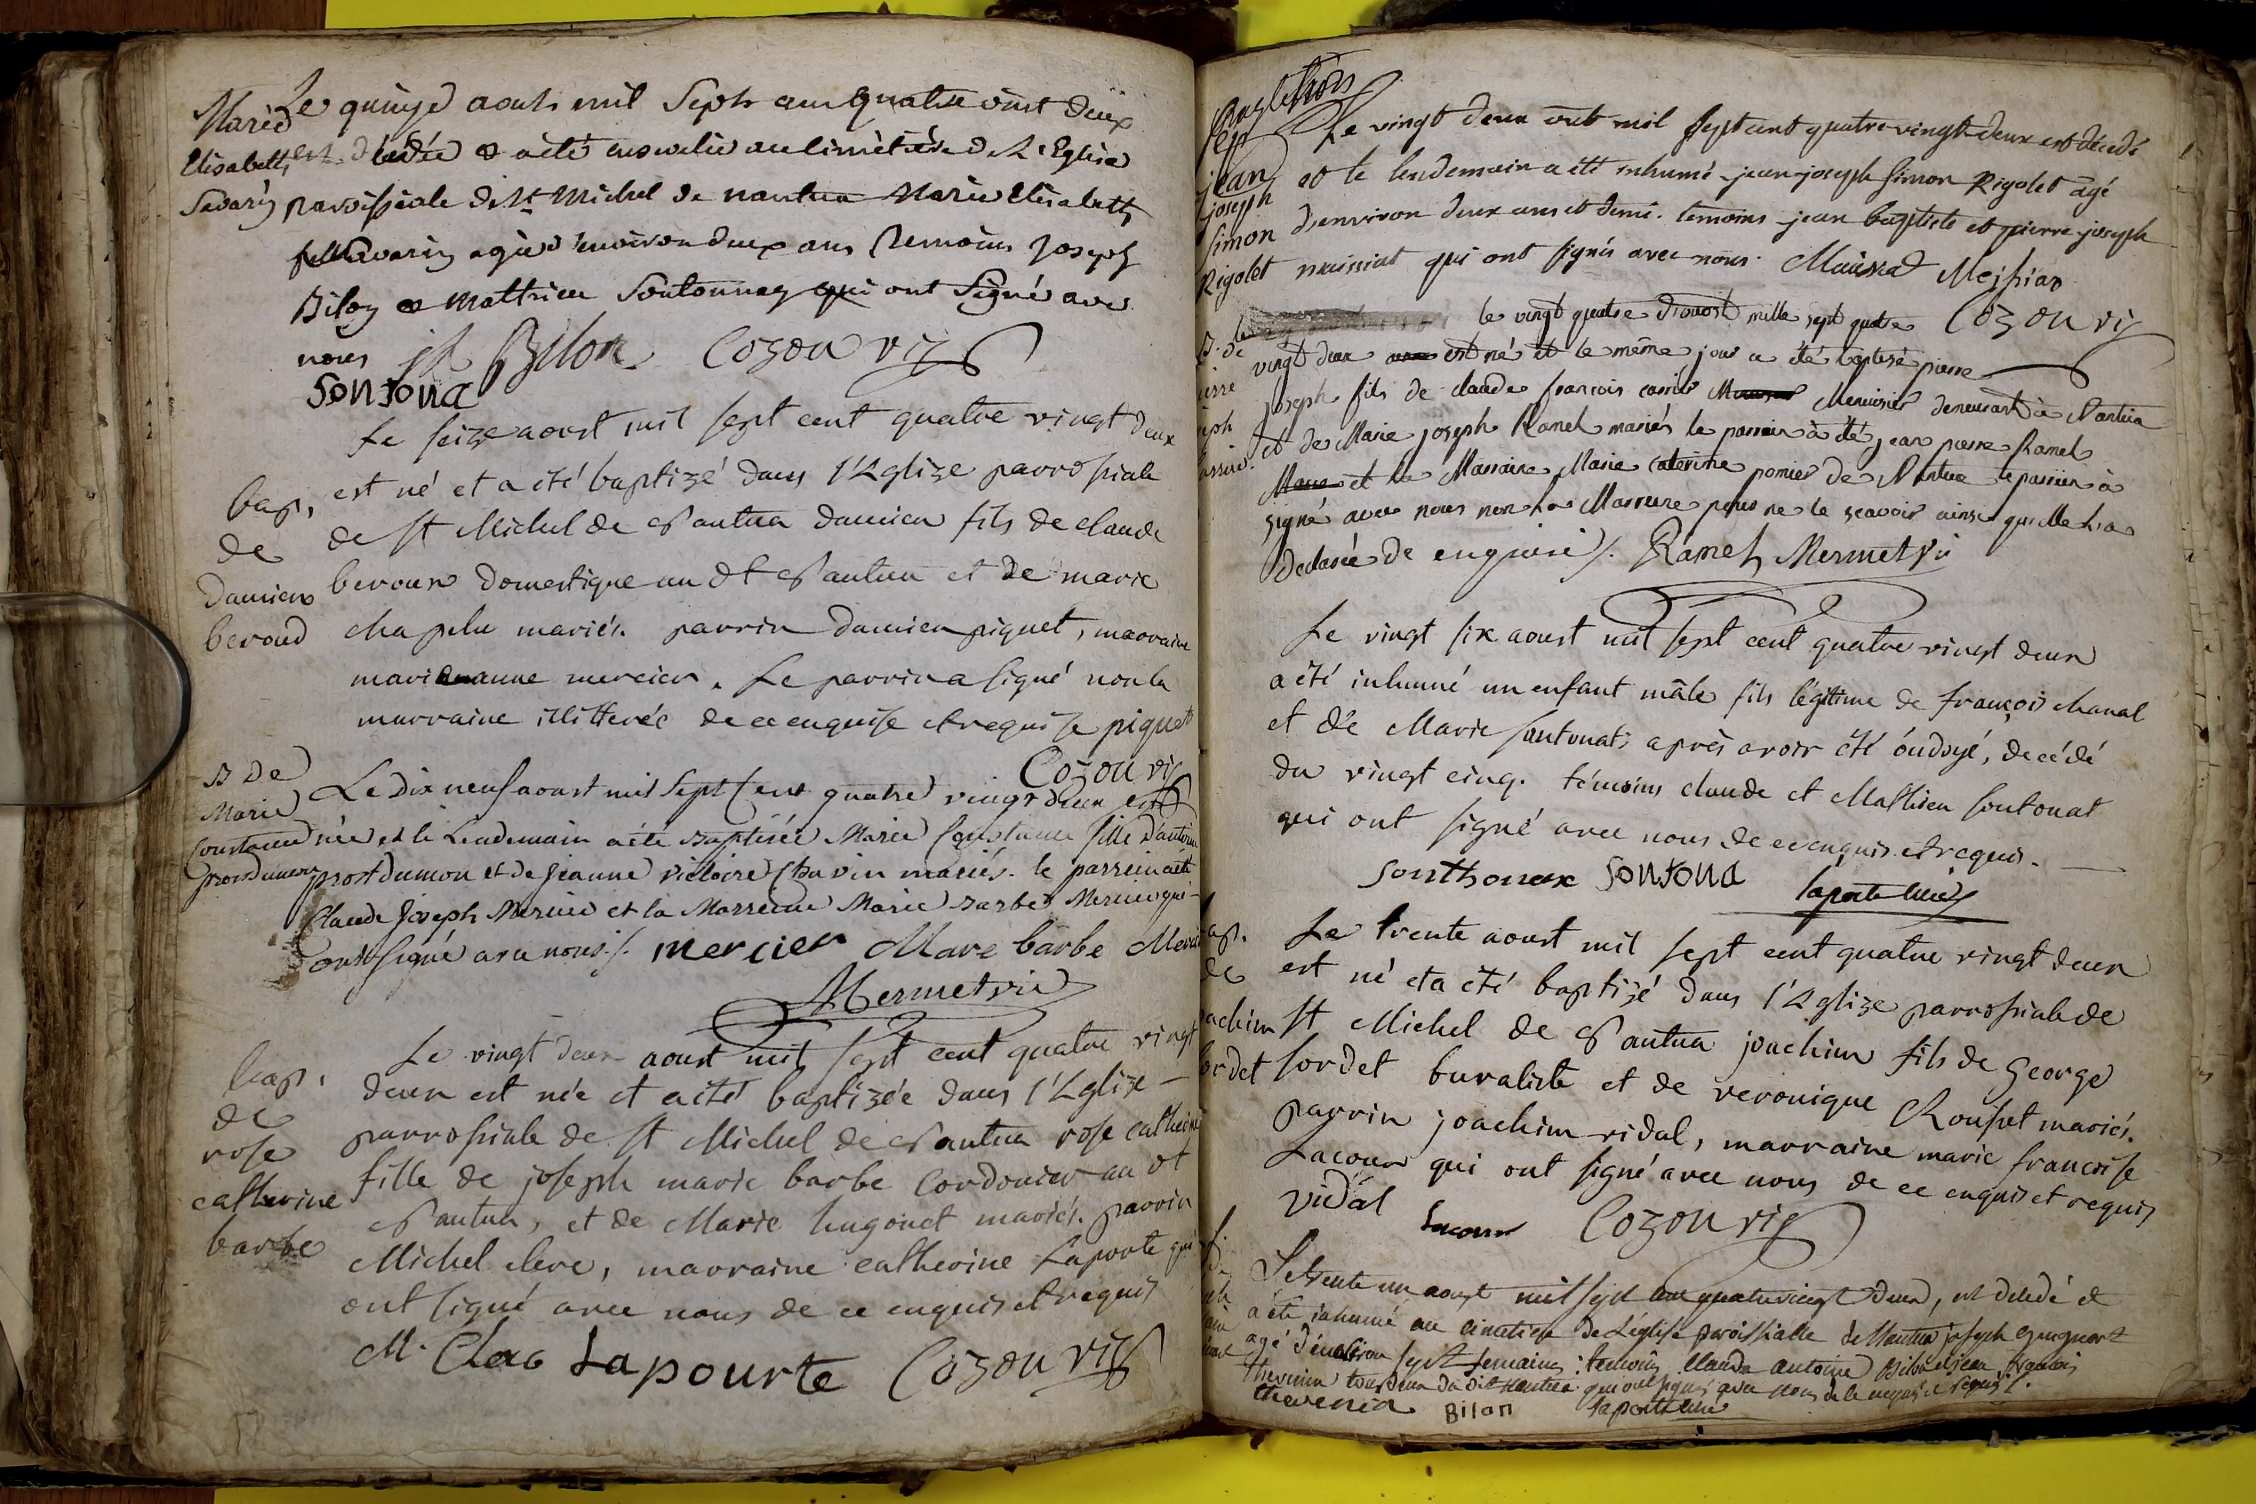 Marie
Elisabeth
Savarin
Le quinze aoust mil Sept cens quatre vint deux
est décédée et a été ensevelie au cimetière de L'Eglise
paroissiale de St Michel de nantua Marie Elisabeth
Savarin agée d'environ deux ans temoins joseph
Bilon et Matthieu Sontonnax qui ont Signé avec
nous jh Bilon Cozon vic
Sontona
bap.
de
Damien
beroud
Le seize aoust mil sept cent quatre vingt deux
est né et a été baptizé dans l'Eglize parrossiale
de st Michel de Nantua damien fils de claude
beroux domestique au dt Nantua et de marie
chapelu mariés. parrin damien piquet, marraine
marianne mercier. Le parrin a signé non la
marraine illitterée de ce enquise et requise piquet
Cozon vic
B De
Marie
Constance
prostdumon
Le Dix neuf aoust mil Sept Cent quatre vingt Deux est
née et le Lendemain a été Baptisée Marie Constance fille d'antoine
prostdumon et de Jeanne victoire Chavin mariés. le parrein a été
Claude Joseph Mercier et la Marreine Marie Barbe Mercier qui
ont signé avec nous ./. mercier Mare barbe Merci
Mermet vic
bap.
de
rose
catherine
barbe
Le vingt deux aoust mil sept cent quatre vingt
deux est née et a été baptizée dans l'Eglize
parrossiale de st Michel de Nantua rose catherine
fille de joseph marie barbe Cordonier au dt
Nantua, et de Marie hugonet mariés. parrin
Michel clerc, marraine catherine Laporte qui
ont signé avec nous de ce enquis et requis
M. Clerc Lapourte Cozon vic
Sep
jean
joseph
simon
Rigolet
Le vingt deux out mil sept cent quatre vingt deux est décedé
et le lendemain a été inhumé jean joseph simon Rigolet agé
d'environ deux ans et demi. temoins jean baptiste et pierre joseph
maissiat qui ont signés avec nous. Maissiat Messiat
Cozon vic
B. de
ierre
seph
le vingt quatre d'aoust mille sept quatre
vingt deux est né et le même jour a été baptisé pierre
joseph fils de claude francois Menuisier demeurant à Nantua
et de Marie joseph Ramel mariés le parrain à été jean pierre Ramel
et la Marraine Marie caterine pomier de Nantua le parrein à
signé avec nous non la Marreine pour ne le scavoir ainsi qu'elle l'a
declarée de enquise ./. Ramel Mermet vic
Le vingt six aoust mil sept cent quatre vingt deux
a été inhumé un enfant mâle fils légitime de françois chanal
et de Marie sontonat, après avoir été ondoyé, decédé
du vingt cinq. témoins claude et Mathieu sontonat
qui ont signé avec nous de ce enquis et requis.
Sonthonax Sontona
laporte vic
ap.
de
oachim
ordet
Le trente aoust mil sept cent quatre vingt deux
est né et a été baptizé dans l'Eglize parrossiale de
st Michel de Nantua joachim fils de George
sordet buraliste et de veronique Rousset mariés.
parrin joachim vidal, marraine marie francoise
Lacour qui ont signé avec nous de ce enquis et requis
Vidal Lacour Cozon vic
Le trente un aoust mil sept cent quatre vingt deux, est décédé et
a été inhumé au cimetière de L'église paroissialle de Nantua joseph
agé d'environ sept semaines : temoins Claude antoine Bilon et jean francois
thevenin tous deux du dit Nantua qui ont signé avec nous de ce enquis et requis ./.
thevenin Bilon laporte vic